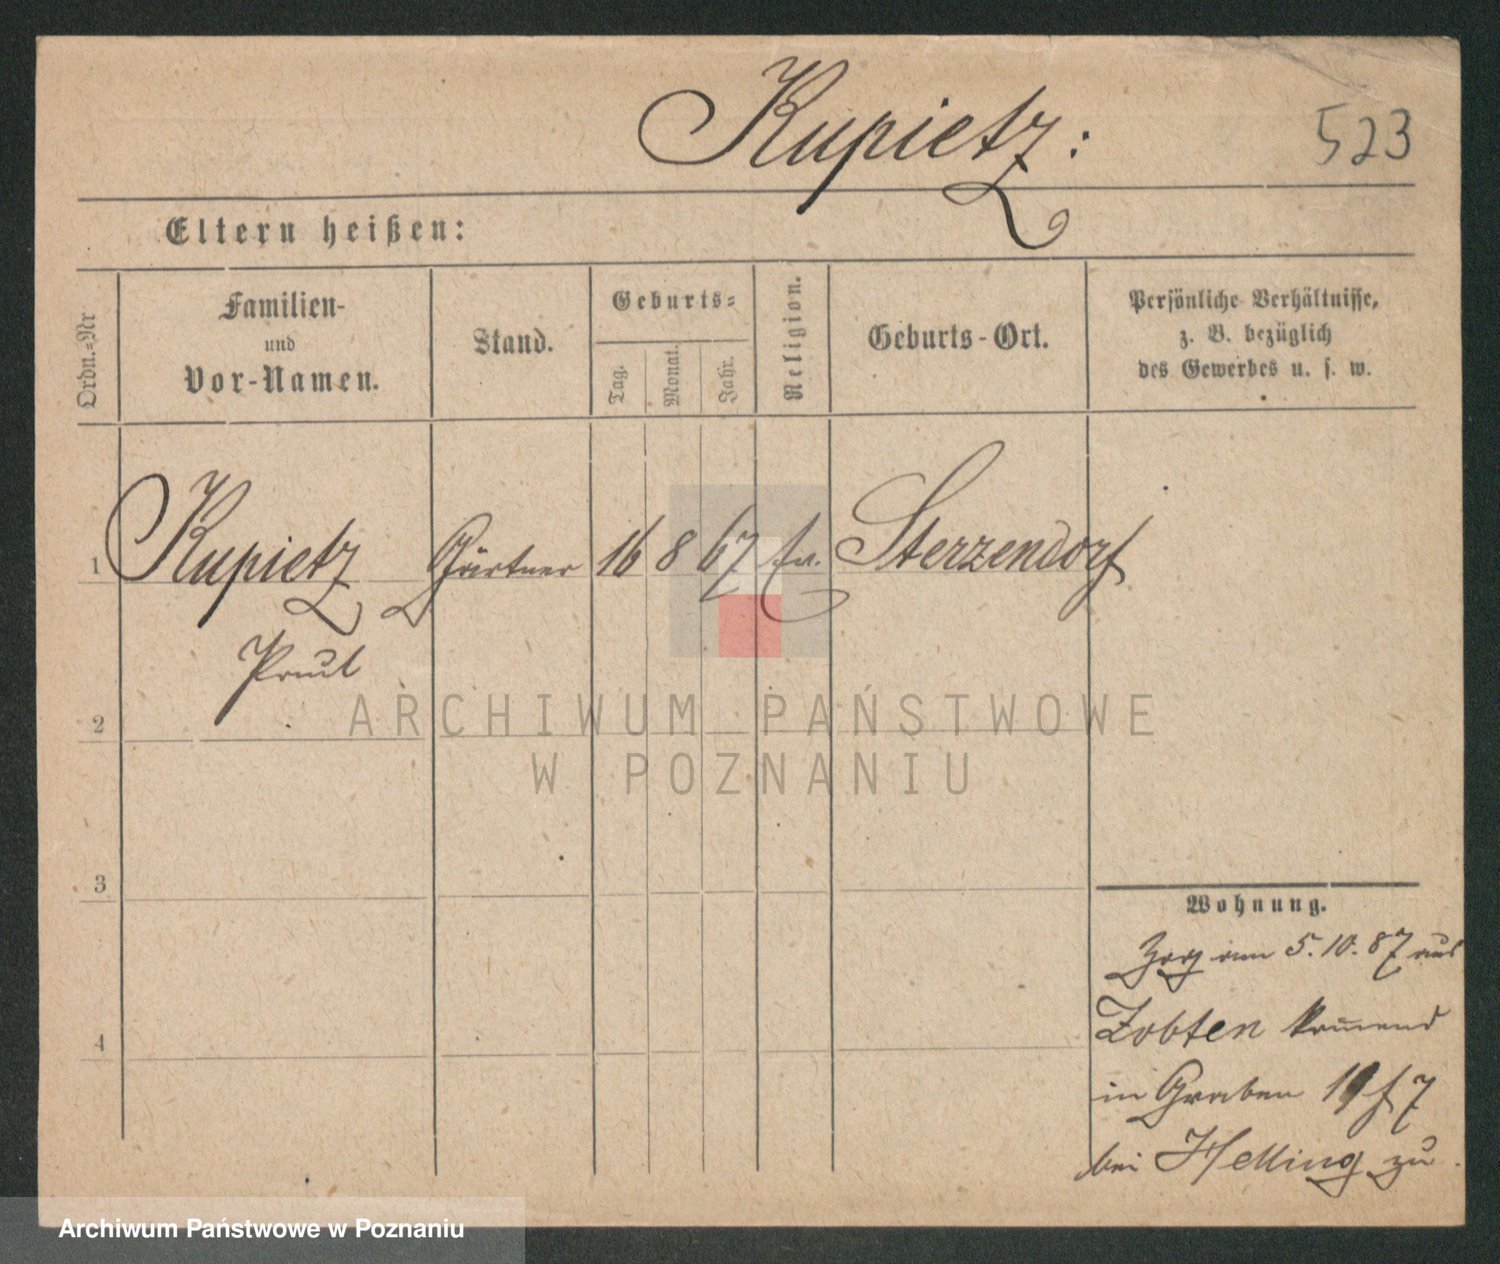 Kupietz:
523
Eltern heißen:
Ordn.=Nr
Familien-
und
Vor-Namen.
Stand.
Geburts=
Tag.
Monat.
Jahr.
Religion.
Geburts-Ort.
Persönliche Verhältnisse,
z. B. bezüglich
des Gewerbes u. s. w.
1 Kupietz Gärtner 16 8 67 Sterzendorf
Paul
2
ARCHIWUM PAŃSTWOWE
W POZNANIU
3
Wohnung.
Zog am 5.10.87 aus
Zobten kom̅end
4
in Graben 19
bei Helling zu.
Archiwum Państwowe w Poznaniu